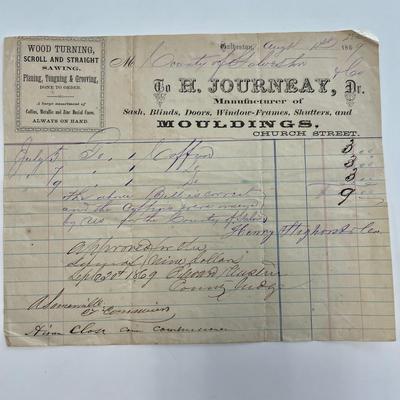 WOOD TURNING,
SCROLL AND STRAIGHT
SAWING,
Planing, Tongueing & Grooving,
DONE TO ORDER.
A large assortment of
Coffins, Metallic and Zinc Burial Cases.
ALWAYS ON HAND.
Galveston, Augt 1st 1869
M County of Galveston
To H. JOURNEAY, Dr.
Manufacturer of
Sash, Blinds, Doors, Window-Frames, Shutters, and
MOULDINGS,
CHURCH STREET.
July 5 To 1 Coffin 3
7 " 1 " 3
9 " 1 " 3
The above Bill is correct 9
and the Coffins were
by for the County of
Henry & Co
Approved in the
Sum of Nine dollars
Sept 20th 1869
County Judge
A Somerville
Co Commissioner
Hiram Close Com